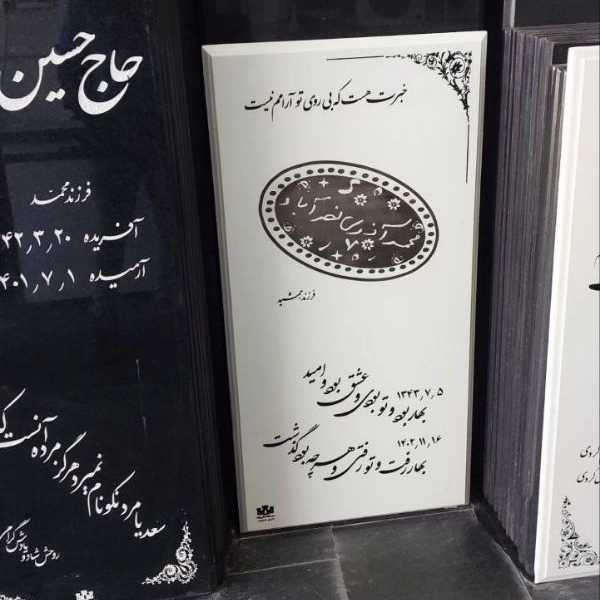 حاج حسین
فرزند محمد
آفریده ۴۲٫۳٫۲۰
آرمیده ۴۰۱٫۷٫۱
سعدیا مرد نکونام نمیرد هرگز مرده آنست ک
روحش شاد و یادش گرامی
خبرت هست که بی روی تو آرامم نیست
محمد آذری نصرآباد
فرزند جمشید
۱۳۴۳٫۷٫۵
بهار بود و تو بودی و عشق بود و امید
۱۴۰۲٫۱۱٫۱۶
بهار رفت و تو رفتی و هر چه بود گذشت